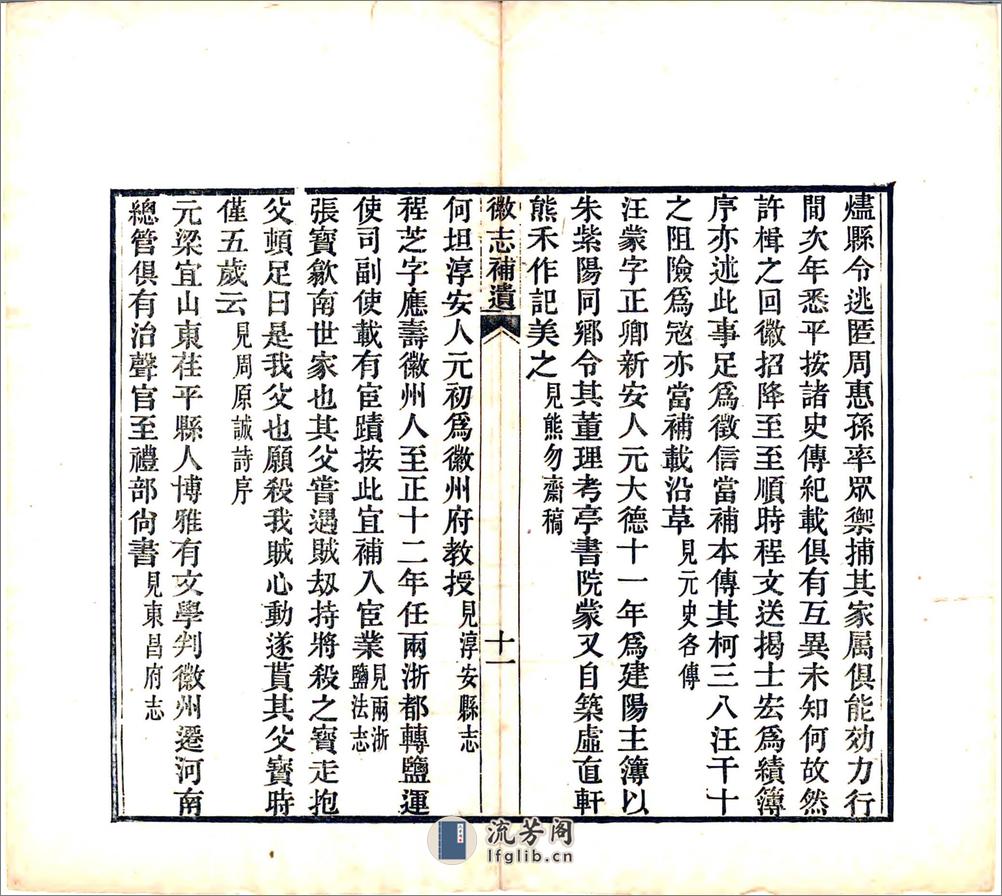 燼縣令逃匿周惠孫率眾禦捕其家属俱能効力行
間次年悉平按諸史傳紀載俱有互異未知何故然
許楫之回徽招降至至順時程文送揭士宏爲績簿
序亦述此事足爲徵信當補本傳其柯三八汪千十
之阻險爲冦亦當補載沿革見元史各傳
汪蒙字正卿新安人元大德十一年爲建陽主簿以
朱紫陽同鄉令其董理考亭書院蒙又自築虛直軒
熊禾作記美之見熊勿齋稿
徽志補遺 十一
何坦淳安人元初爲徽州府教授見淳安縣志
程芝字應壽徽州人至正十二年任兩浙都轉鹽運
使司副使載有宦蹟按此宜補入宦業見兩浙鹽法志
張寶歙南世家也其父嘗遇賊刼持將殺之寶走抱
父頓足曰是我父也願殺我賊心動遂貰其父寶時
僅五歲云見周原誠詩序
元梁宜山東茌平縣人博雅有文學判徽州遷河南
總管俱有治聲官至禮部尙書見東昌府志
流芳阁
lfglib.cn